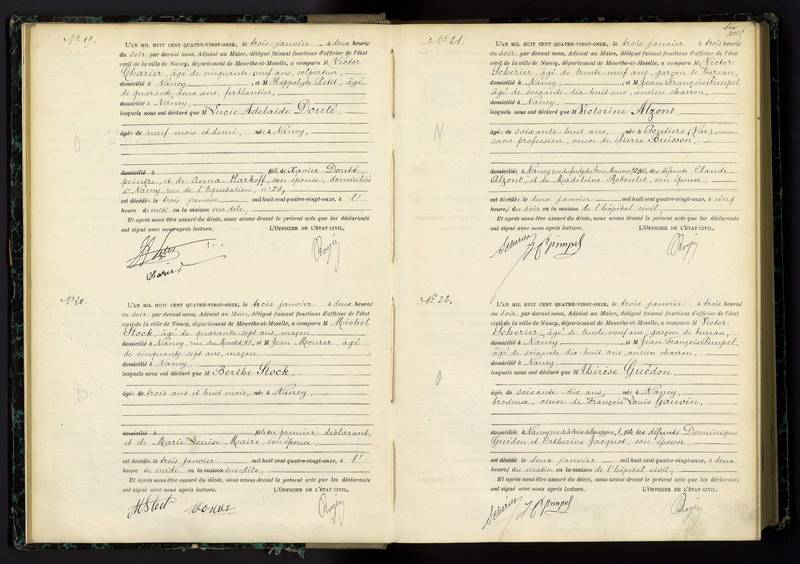 N° 19.
L'AN MIL HUIT CENT QUATRE-VINGT-ONZE, le trois janvier à deux heures
du soir, par devant nous, Adjoint au Maire, délégué faisant fonctions d'officier de l'état
civil de la ville de Nancy, département de Meurthe-et-Moselle, a comparu M. Victor
Charier, âgé de cinquante neuf ans, colporteur,
domicilié à Nancy et M Hippolyte Petit, âgé
de quarante deux ans, ferblantier,
domicilié à Nancy,
lesquels nous ont déclaré que M Lucie Adelaïde Douté,
âgée de neuf mois et demi, née à Nancy,
domicilié à fille de Xavier Douté,
peintre, et de Anna Karkoff, son épouse, domiciliés
à Nancy rue de l'Equitation, n° 20,
est décédée le trois janvier mil huit cent quatre-vingt-onze, à l'
heure de midi en la maison susdite,
Et après nous être assuré du décès, nous avons dressé le présent acte que les déclarants
ont signé avec nous après lecture. L'OFFICIER DE L'ÉTAT CIVIL,
Charier
N° 20.
L'AN MIL HUIT CENT QUATRE-VINGT-ONZE, le trois janvier à deux heures
du soir, par devant nous, Adjoint au Maire, délégué faisant fonctions d'officier de l'état
civil de la ville de Nancy, département de Meurthe-et-Moselle, a comparu M Michel
Stock, âgé de quarante sept ans, maçon,
domicilié à Nancy, rue du Montet, 81, et M Jean Mourer, âgé
de cinquante sept ans, maçon,
domicilié à Nancy,
lesquels nous ont déclaré que M Berthe Stock,
âgée de trois ans et huit mois, née à Nancy,
domicilié à fille du premier déclarant,
et de Marie Louise Maire, son épouse,
est décédée le trois janvier mil huit cent quatre-vingt-onze, à l'
heure de midi en la maison susdite,
Et après nous être assuré du décès, nous avons dressé le présent acte que les déclarants
ont signé avec nous après lecture. L'OFFICIER DE L'ÉTAT CIVIL,
N° 21.
L'AN MIL HUIT CENT QUATRE-VINGT-ONZE, le trois janvier à trois heures
du soir, par devant nous, Adjoint au Maire, délégué faisant fonctions d'officier de l'état
civil de la ville de Nancy, département de Meurthe-et-Moselle, a comparu M Victor
Scherier, âgé de trente neuf ans, garçon de bureau,
domicilié à Nancy et M Jean François Pimpel,
âgé de soixante dix huit ans, ancien charron,
domicilié à Nancy,
lesquels nous ont déclaré que M Victorine Alzont,
âgée de soixante huit ans, née à (Var),
sans profession, veuve de Pierre Buisson,
domiciliée à Nancy rue du faubg des trois Maisons, fille des défunts Claude
Alzont, et de Madeleine Roboulet, son épouse,
est décédée le deux janvier mil huit cent quatre-vingt-onze, à cinq
heures du soir en la maison de l'hôpital civil,
Et après nous être assuré du décès, nous avons dressé le présent acte que les déclarants
ont signé avec nous après lecture. L'OFFICIER DE L'ÉTAT CIVIL,
Scherier Pimpel
N° 22.
L'AN MIL HUIT CENT QUATRE-VINGT-ONZE, le trois janvier à trois heures
du soir, par devant nous, Adjoint au Maire, délégué faisant fonctions d'officier de l'état
civil de la ville de Nancy, département de Meurthe-et-Moselle, a comparu M Victor
Scherier, âgé de trente neuf ans, garçon de bureau,
domicilié à Nancy et M Jean François Pimpel,
âgé de soixante dix huit ans, ancien charron,
domicilié à Nancy,
lesquels nous ont déclaré que M Thérèse Guédon,
âgée de soixante dix ans, née à Nancy,
brodeuse, veuve de François Louis Gauvin,
domiciliée à Nancy rue fille des défunts Dominique
Guédon et Catherine Jacquot, son épouse,
est décédée le deux janvier mil huit cent quatre-vingt-onze, à deux
heures du matin en la maison de l'hôpital civil,
Et après nous être assuré du décès, nous avons dressé le présent acte que les déclarants
ont signé avec nous après lecture. L'OFFICIER DE L'ÉTAT CIVIL,
Scherier Pimpel